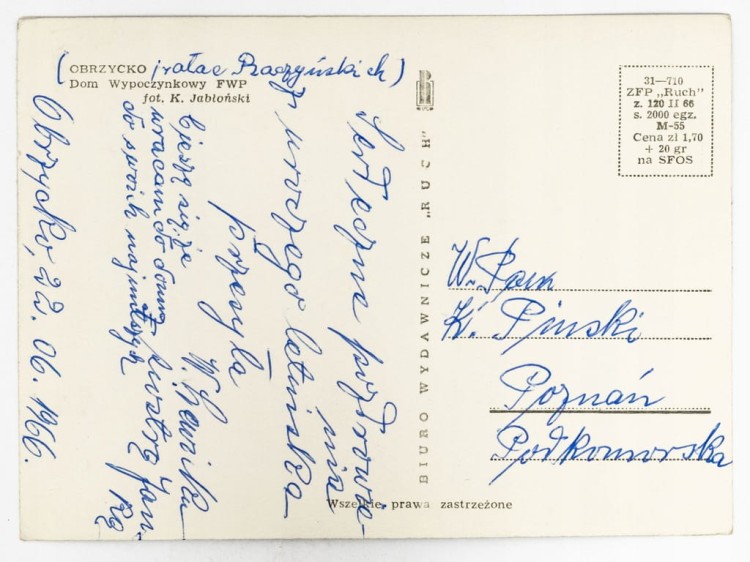 ( OBRZYCKO pałac Raczyńskich )
Dom Wypoczynkowy FWP
fot. K. Jabłoński
Serdeczne pozdrowie-
nia
z uroczego letniska
przesyła
W.
z siostrą Jan-
ką
Cieszę się, że
wracam do domu
do swoich najmilszych
Obrzycko, 22. 06. 1966.
BIURO WYDAWNICZE "RUCH"
31—710
ZFP „Ruch"
z. 120 II 66
s. 2000 egz.
M-55
Cena zł 1,70
+ 20 gr
na SFOS
W. Pan
K. Pinski
Poznań
Podkomorska
Wszelkie prawa zastrzeżone